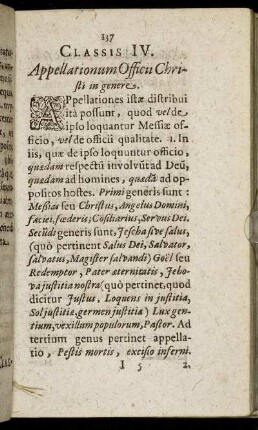 137
CLASSIS IV.
Appellationum Officii Chri-
sti in genere.
APpellationes istæ distribui
ita possunt, quod vel de
ipso loquantur Messiæ of-
ficio, vel de officii qualitate. 1. In
iis, quæ de ipso loquuntur officio,
quædam respectū involvūt ad Deū,
quædam ad homines, quædā ad op-
positos hostes. Primi generis sunt:
Messias seu Christus, Angelus Domini,
faciei, fœderis; Cōsiliarius, Servus Dei.
Secūdi generis sunt, Jescha sive salus,
(quò pertinent Salus Dei, Salvator,
salvatus, Magister salvandi) Goël seu
Redemptor, Pater æternitatis, Jeho-
va justitia nostra (quò pertinet, quod
dicitur Justus, Loquens in justitia,
Sol justitiæ, germen justitiæ) Lux gen-
tium, vexillum populorum, Pastor. Ad
tertium genus pertinet appella-
tio, Pestis mortis, excisio inferni.
I 5 2.